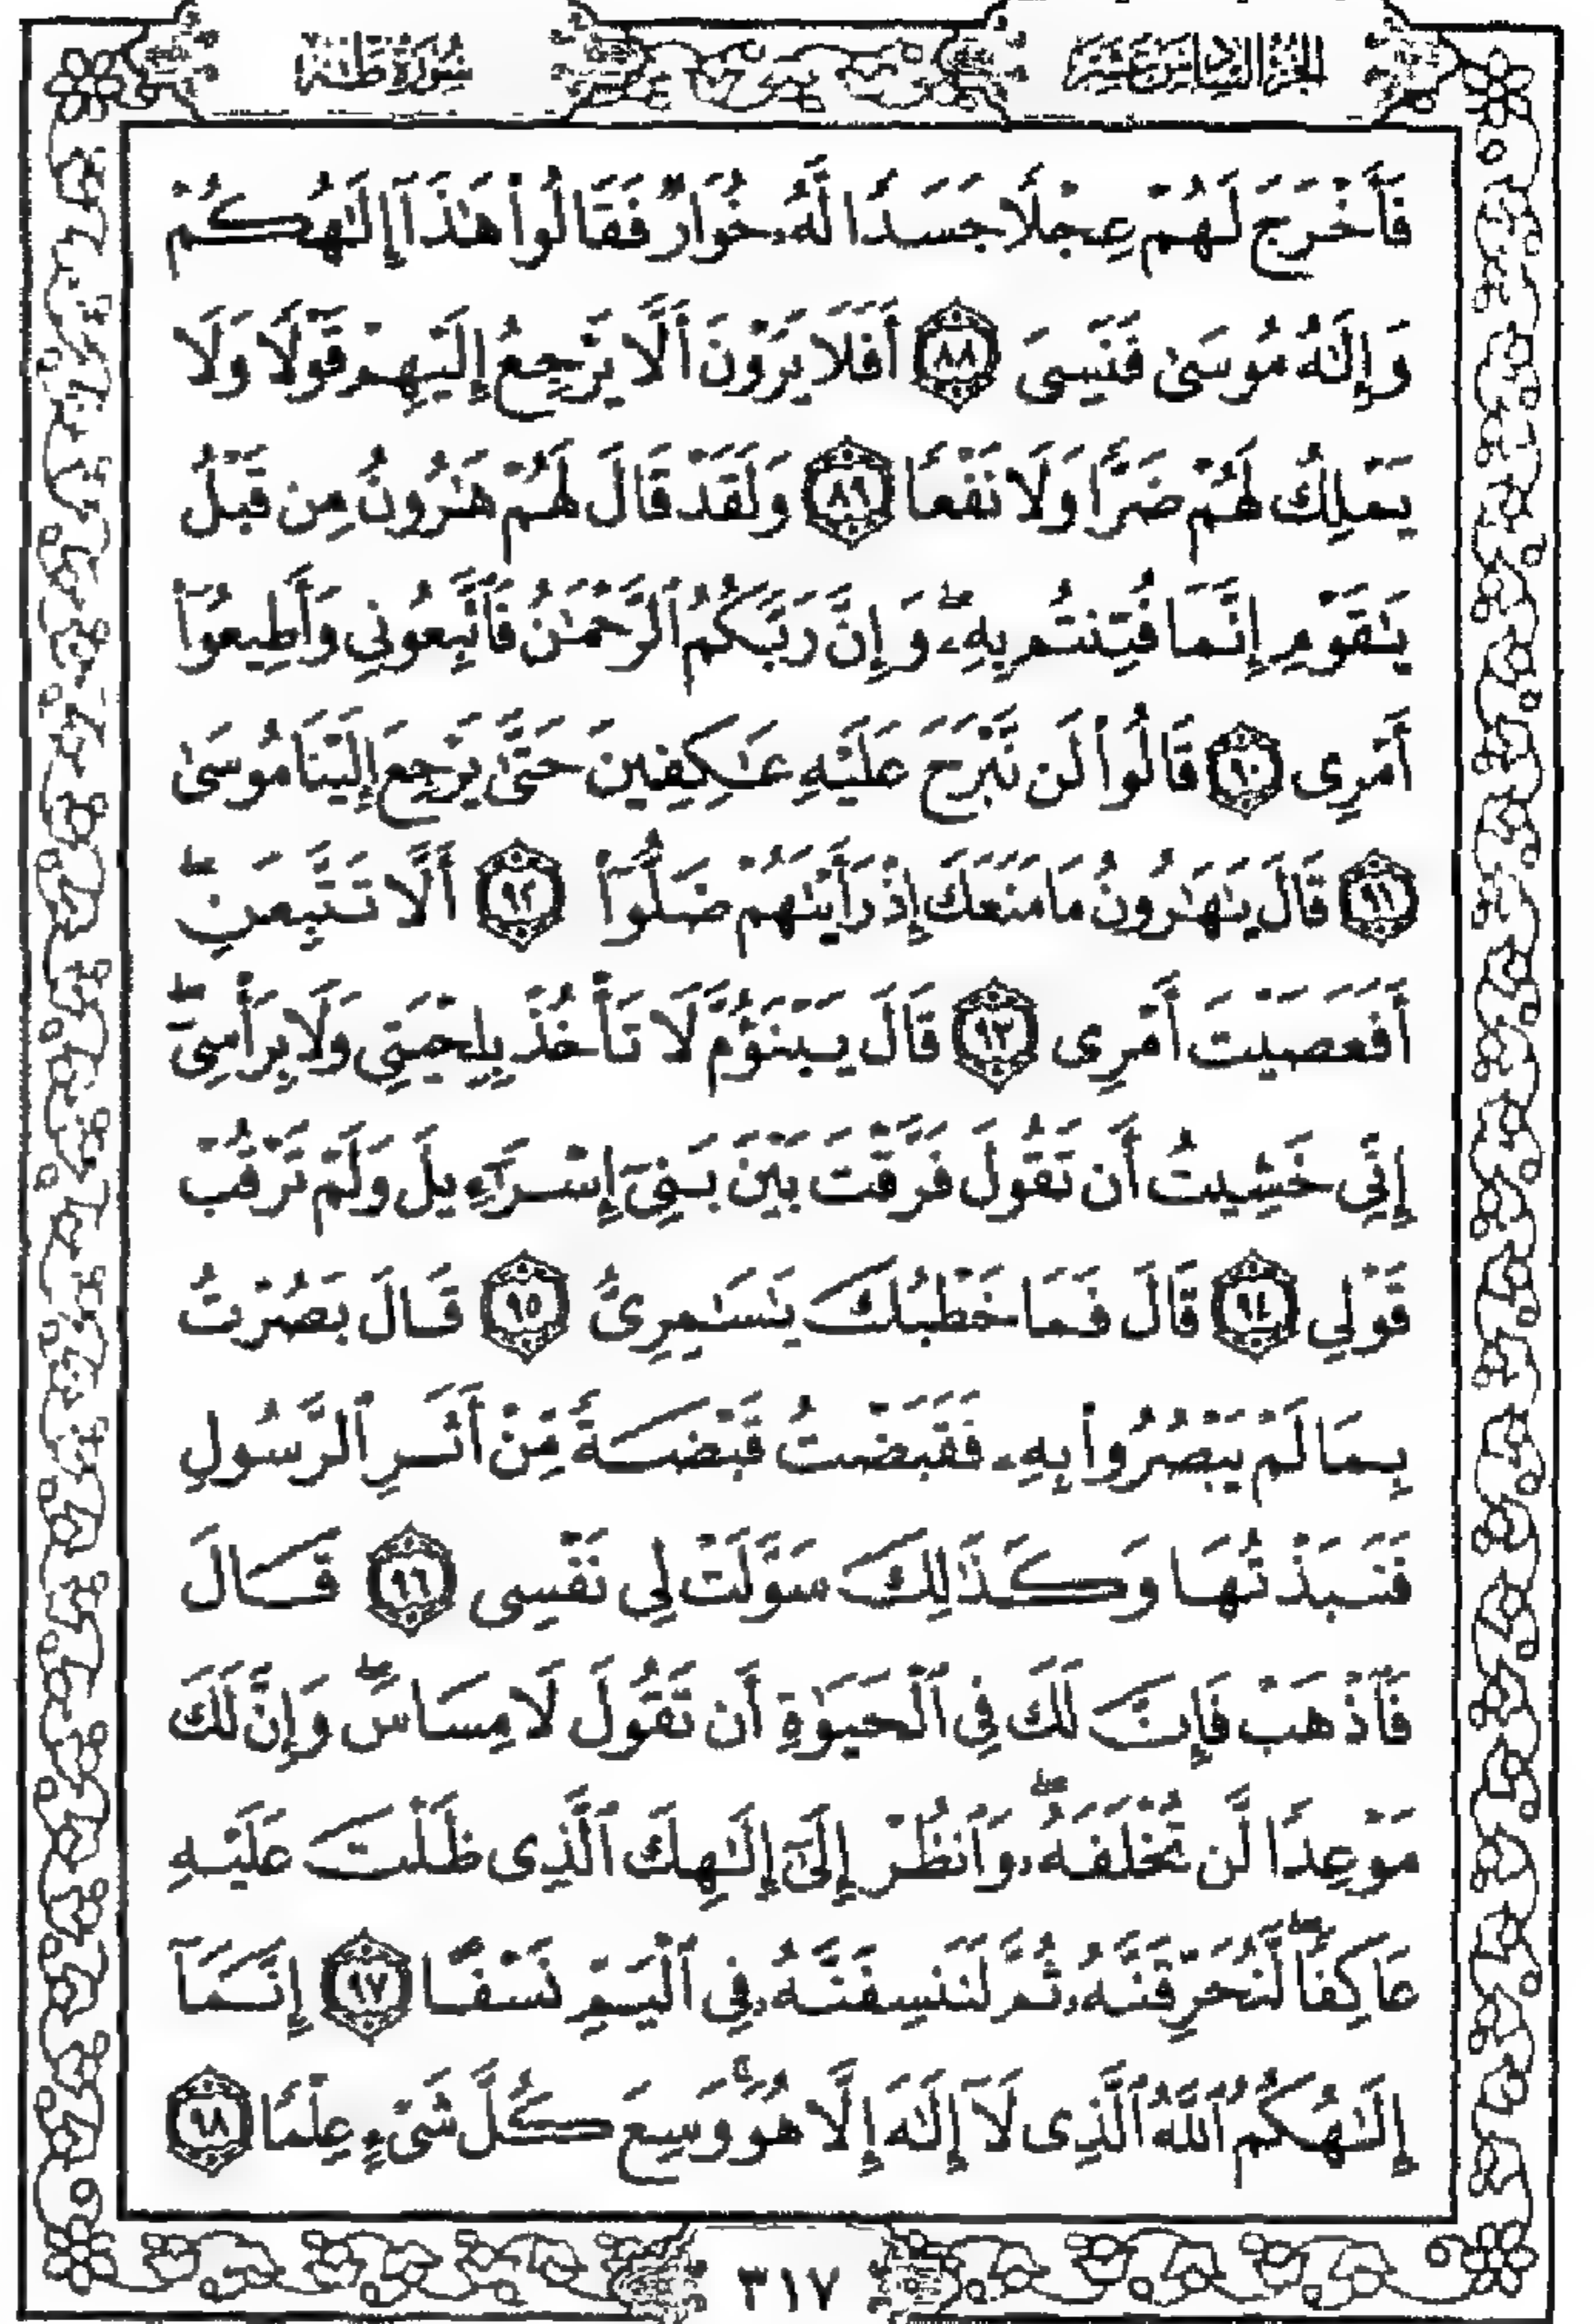 الجزء السادس عشر
سورة طه
فَأَخْرَجَ لَهُمْ عِجْلًا جَسَدًا لَّهُۥ خُوَارٌ فَقَالُوا۟ هَٰذَآ إِلَٰهُكُمْ
وَإِلَٰهُ مُوسَىٰ فَنَسِىَ ٨٨ أَفَلَا يَرَوْنَ أَلَّا يَرْجِعُ إِلَيْهِمْ قَوْلًا وَلَا
يَمْلِكُ لَهُمْ ضَرًّا وَلَا نَفْعًا ٨٩ وَلَقَدْ قَالَ لَهُمْ هَٰرُونُ مِن قَبْلُ
يَٰقَوْمِ إِنَّمَا فُتِنتُم بِهِۦۖ وَإِنَّ رَبَّكُمُ ٱلرَّحْمَٰنُ فَٱتَّبِعُونِى وَأَطِيعُوٓا۟
أَمْرِى ٩٠ قَالُوا۟ لَن نَّبْرَحَ عَلَيْهِ عَٰكِفِينَ حَتَّىٰ يَرْجِعَ إِلَيْنَا مُوسَىٰ
٩١ قَالَ يَٰهَٰرُونُ مَا مَنَعَكَ إِذْ رَأَيْتَهُمْ ضَلُّوٓا۟ ٩٢ أَلَّا تَتَّبِعَنِۖ
أَفَعَصَيْتَ أَمْرِى ٩٣ قَالَ يَبْنَؤُمَّ لَا تَأْخُذْ بِلِحْيَتِى وَلَا بِرَأْسِىٓۖ
إِنِّى خَشِيتُ أَن تَقُولَ فَرَّقْتَ بَيْنَ بَنِىٓ إِسْرَٰٓءِيلَ وَلَمْ تَرْقُبْ
قَوْلِى ٩٤ قَالَ فَمَا خَطْبُكَ يَٰسَٰمِرِىُّ ٩٥ قَالَ بَصُرْتُ
بِمَا لَمْ يَبْصُرُوا۟ بِهِۦ فَقَبَضْتُ قَبْضَةً مِّنْ أَثَرِ ٱلرَّسُولِ
فَنَبَذْتُهَا وَكَذَٰلِكَ سَوَّلَتْ لِى نَفْسِى ٩٦ قَالَ
فَٱذْهَبْ فَإِنَّ لَكَ فِى ٱلْحَيَوٰةِ أَن تَقُولَ لَا مِسَاسَۖ وَإِنَّ لَكَ
مَوْعِدًا لَّن تُخْلَفَهُۥۖ وَٱنظُرْ إِلَىٰٓ إِلَٰهِكَ ٱلَّذِى ظَلْتَ عَلَيْهِ
عَاكِفًاۖ لَّنُحَرِّقَنَّهُۥ ثُمَّ لَنَنسِفَنَّهُۥ فِى ٱلْيَمِّ نَسْفًا ٩٧ إِنَّمَآ
إِلَٰهُكُمُ ٱللَّهُ ٱلَّذِى لَآ إِلَٰهَ إِلَّا هُوَۚ وَسِعَ كُلَّ شَىْءٍ عِلْمًا ٩٨
٣١٧